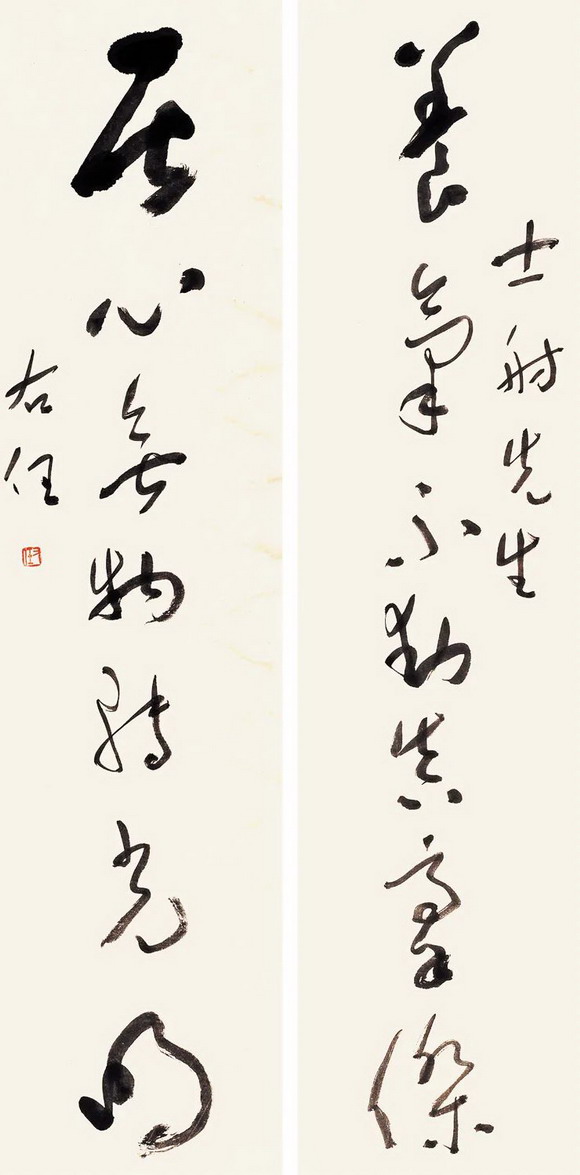 士射先生
養氣不動真豪傑
居心無物轉光明
右任